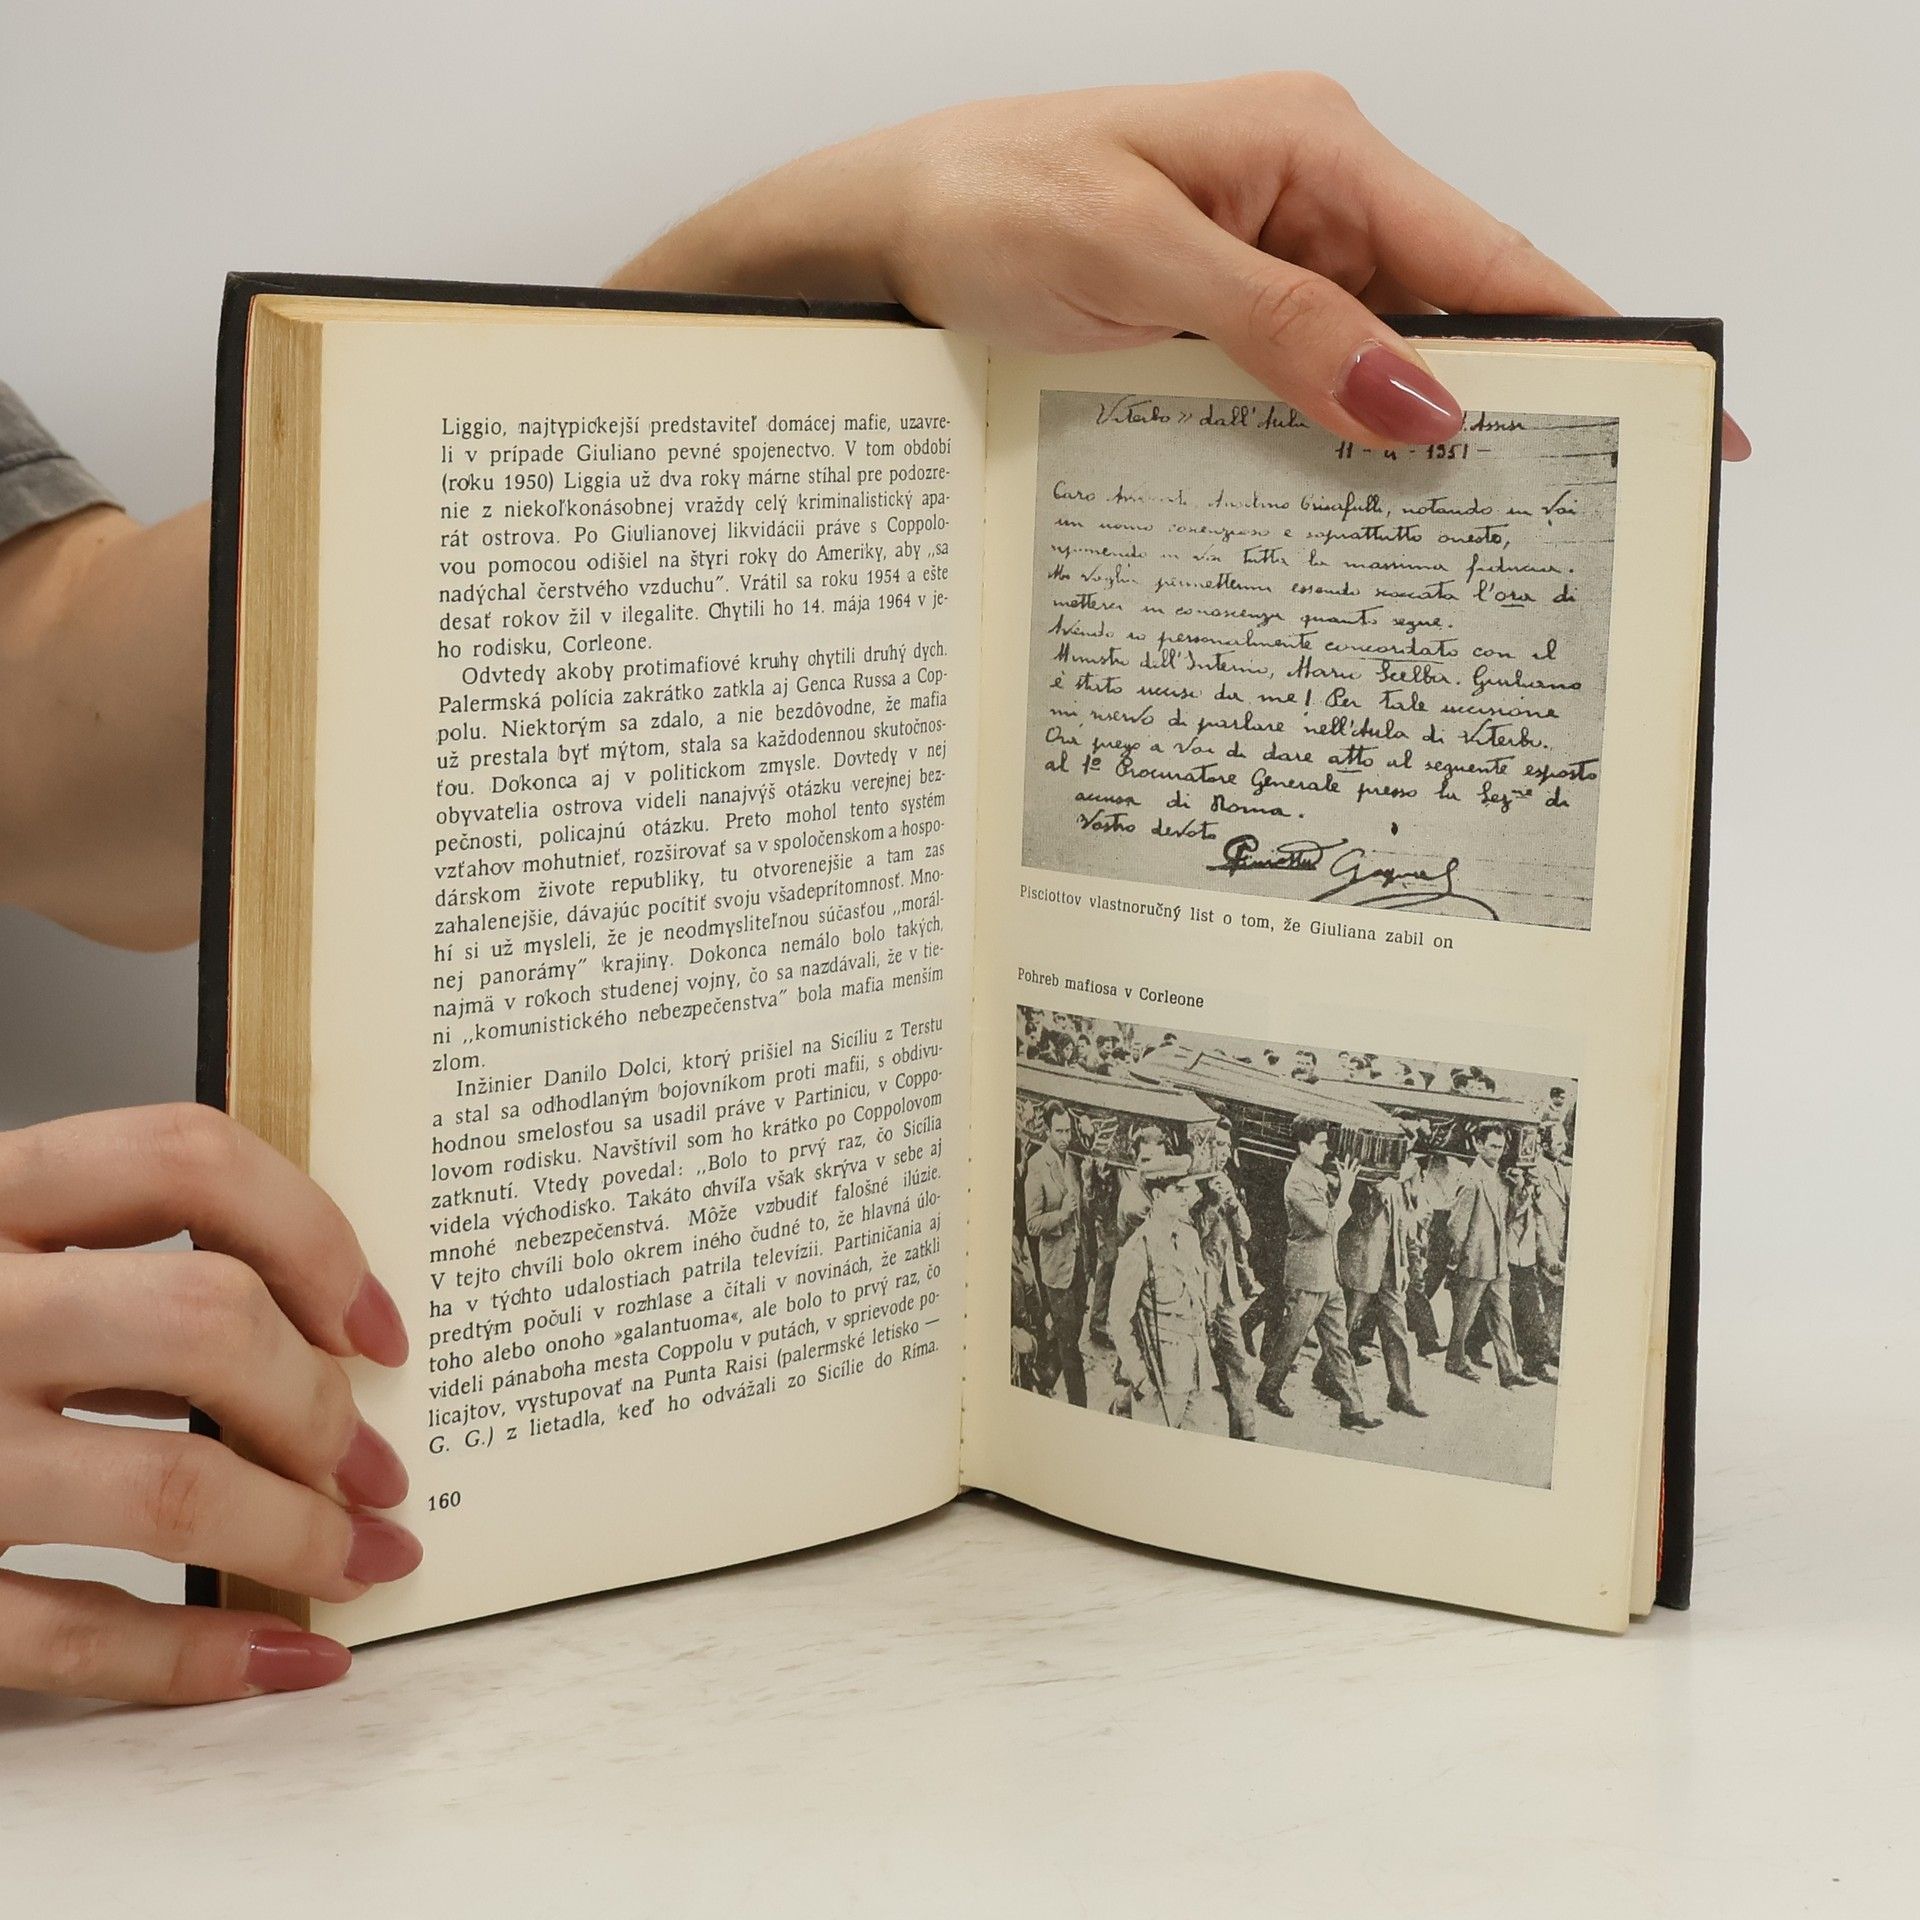 Liggio, najtypickejší predstaviteľ domácej mafie, uzavre-
li v prípade Giuliano pevné spojenectvo. V tom období
(roku 1950) Liggia už dva roky márne stíhal pre podozre-
nie z niekoľkonásobnej vraždy celý kriminalistický apa-
rát ostrova. Po Giulianovej likvidácii práve s Coppolo-
vou pomocou odišiel na štyri roky do Ameriky, aby „sa
nadýchal čerstvého vzduchu”. Vrátil sa roku 1954 a ešte
desať rokov žil v ilegalite. Chytili ho 14. mája 1964 v je-
ho rodisku, Corleone.
Odvtedy akoby protimafiové kruhy chytili druhý dych.
Palermská polícia zakrátko zatkla aj Genca Russa a Cop-
polu. Niektorým sa zdalo, a nie bezdôvodne, že mafia
už prestala byť mýtom, stala sa každodennou skutočnos-
ťou. Dokonca aj v politickom zmysle. Dovtedy v nej
obyvatelia ostrova videli nanajvýš otázku verejnej bez-
pečnosti, policajnú otázku. Preto mohol tento systém
vzťahov mohutnieť, rozširovať sa v spoločenskom a hospo-
dárskom živote republiky, tu otvorenejšie a tam zas
zahalenejšie, dávajúc pocítiť svoju všadeprítomnosť. Mno-
hí si už mysleli, že je neodmysliteľnou súčasťou „morál-
nej panorámy” krajiny. Dokonca nemálo bolo takých,
najmä v rokoch studenej vojny, čo sa nazdávali, že v tie-
ni „komunistického nebezpečenstva” bola mafia menším
zlom.
Inžinier Danilo Dolci, ktorý prišiel na Sicíliu z Terstu
a stal sa odhodlaným bojovníkom proti mafii, s obdivu-
hodnou smelosťou sa usadil práve v Partinicu, v Coppo-
lovom rodisku. Navštívil som ho krátko po Coppolovom
zatknutí. Vtedy povedal: „Bolo to prvý raz, čo Sicília
videla východisko. Takáto chvíľa však skrýva v sebe aj
mnohé nebezpečenstvá. Môže vzbudiť falošné ilúzie.
V tejto chvíli bolo okrem iného čudné to, že hlavná úlo-
ha v týchto udalostiach patrila televízii. Partiničania aj
predtým počuli v rozhlase a čítali v novinách, že zatkli
toho alebo onoho »galantuoma«, ale bolo to prvý raz, čo
videli pánaboha mesta Coppolu v putách, v sprievode po-
licajtov, vystupovať na Punta Raisi (palermské letisko —
G. G.) z lietadla, keď ho odvážali zo Sicílie do Ríma.
160
Viterbo » dall'Aula Assisi
1951 -
Caro Anselmo Crisafulli, notando in Voi
un uomo coscenzioso e soprattutto onesto,
in Voi tutta la massima fiducia.
Mi Voglia permettermi essendo scoccata l'ora di
mettervi in conoscenza quanto segue.
Avendo io personalmente concordato con il
Ministro dell'Interno, Mario Scelba. Giuliano
è stato ucciso da me! Per tale uccisione
mi riservo di parlare nell'Aula di Viterbo.
Ora prego a Voi di dare atto al seguente esposto
al 1º Procuratore Generale presso la Sezne di
accusa di Roma.
Vostro devoto
Pisciottov vlastnoručný list o tom, že Giuliana zabil on
Pohreb mafiosa v Corleone